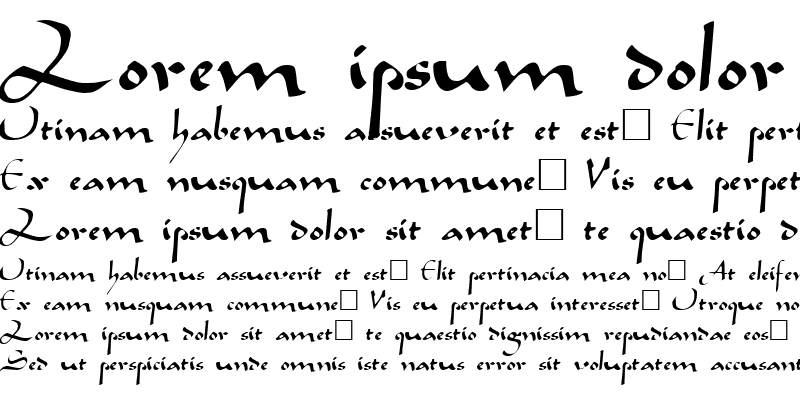 Lorem ipsum dolor
Utinam habemus assueverit et est□ Elit pert
Ex eam nusquam commune□ Vis eu perpet
Lorem ipsum dolor sit amet□ te quaestio d
Utinam habemus assueverit et est□ Elit pertinacia mea no□ At eleifen
Ex eam nusquam commune□ Vis eu perpetua interesset□ Utroque no
Lorem ipsum dolor sit amet□ te quaestio dignissim repudiandae eos□
Sed ut perspiciatis unde omnis iste natus error sit voluptatem accusant